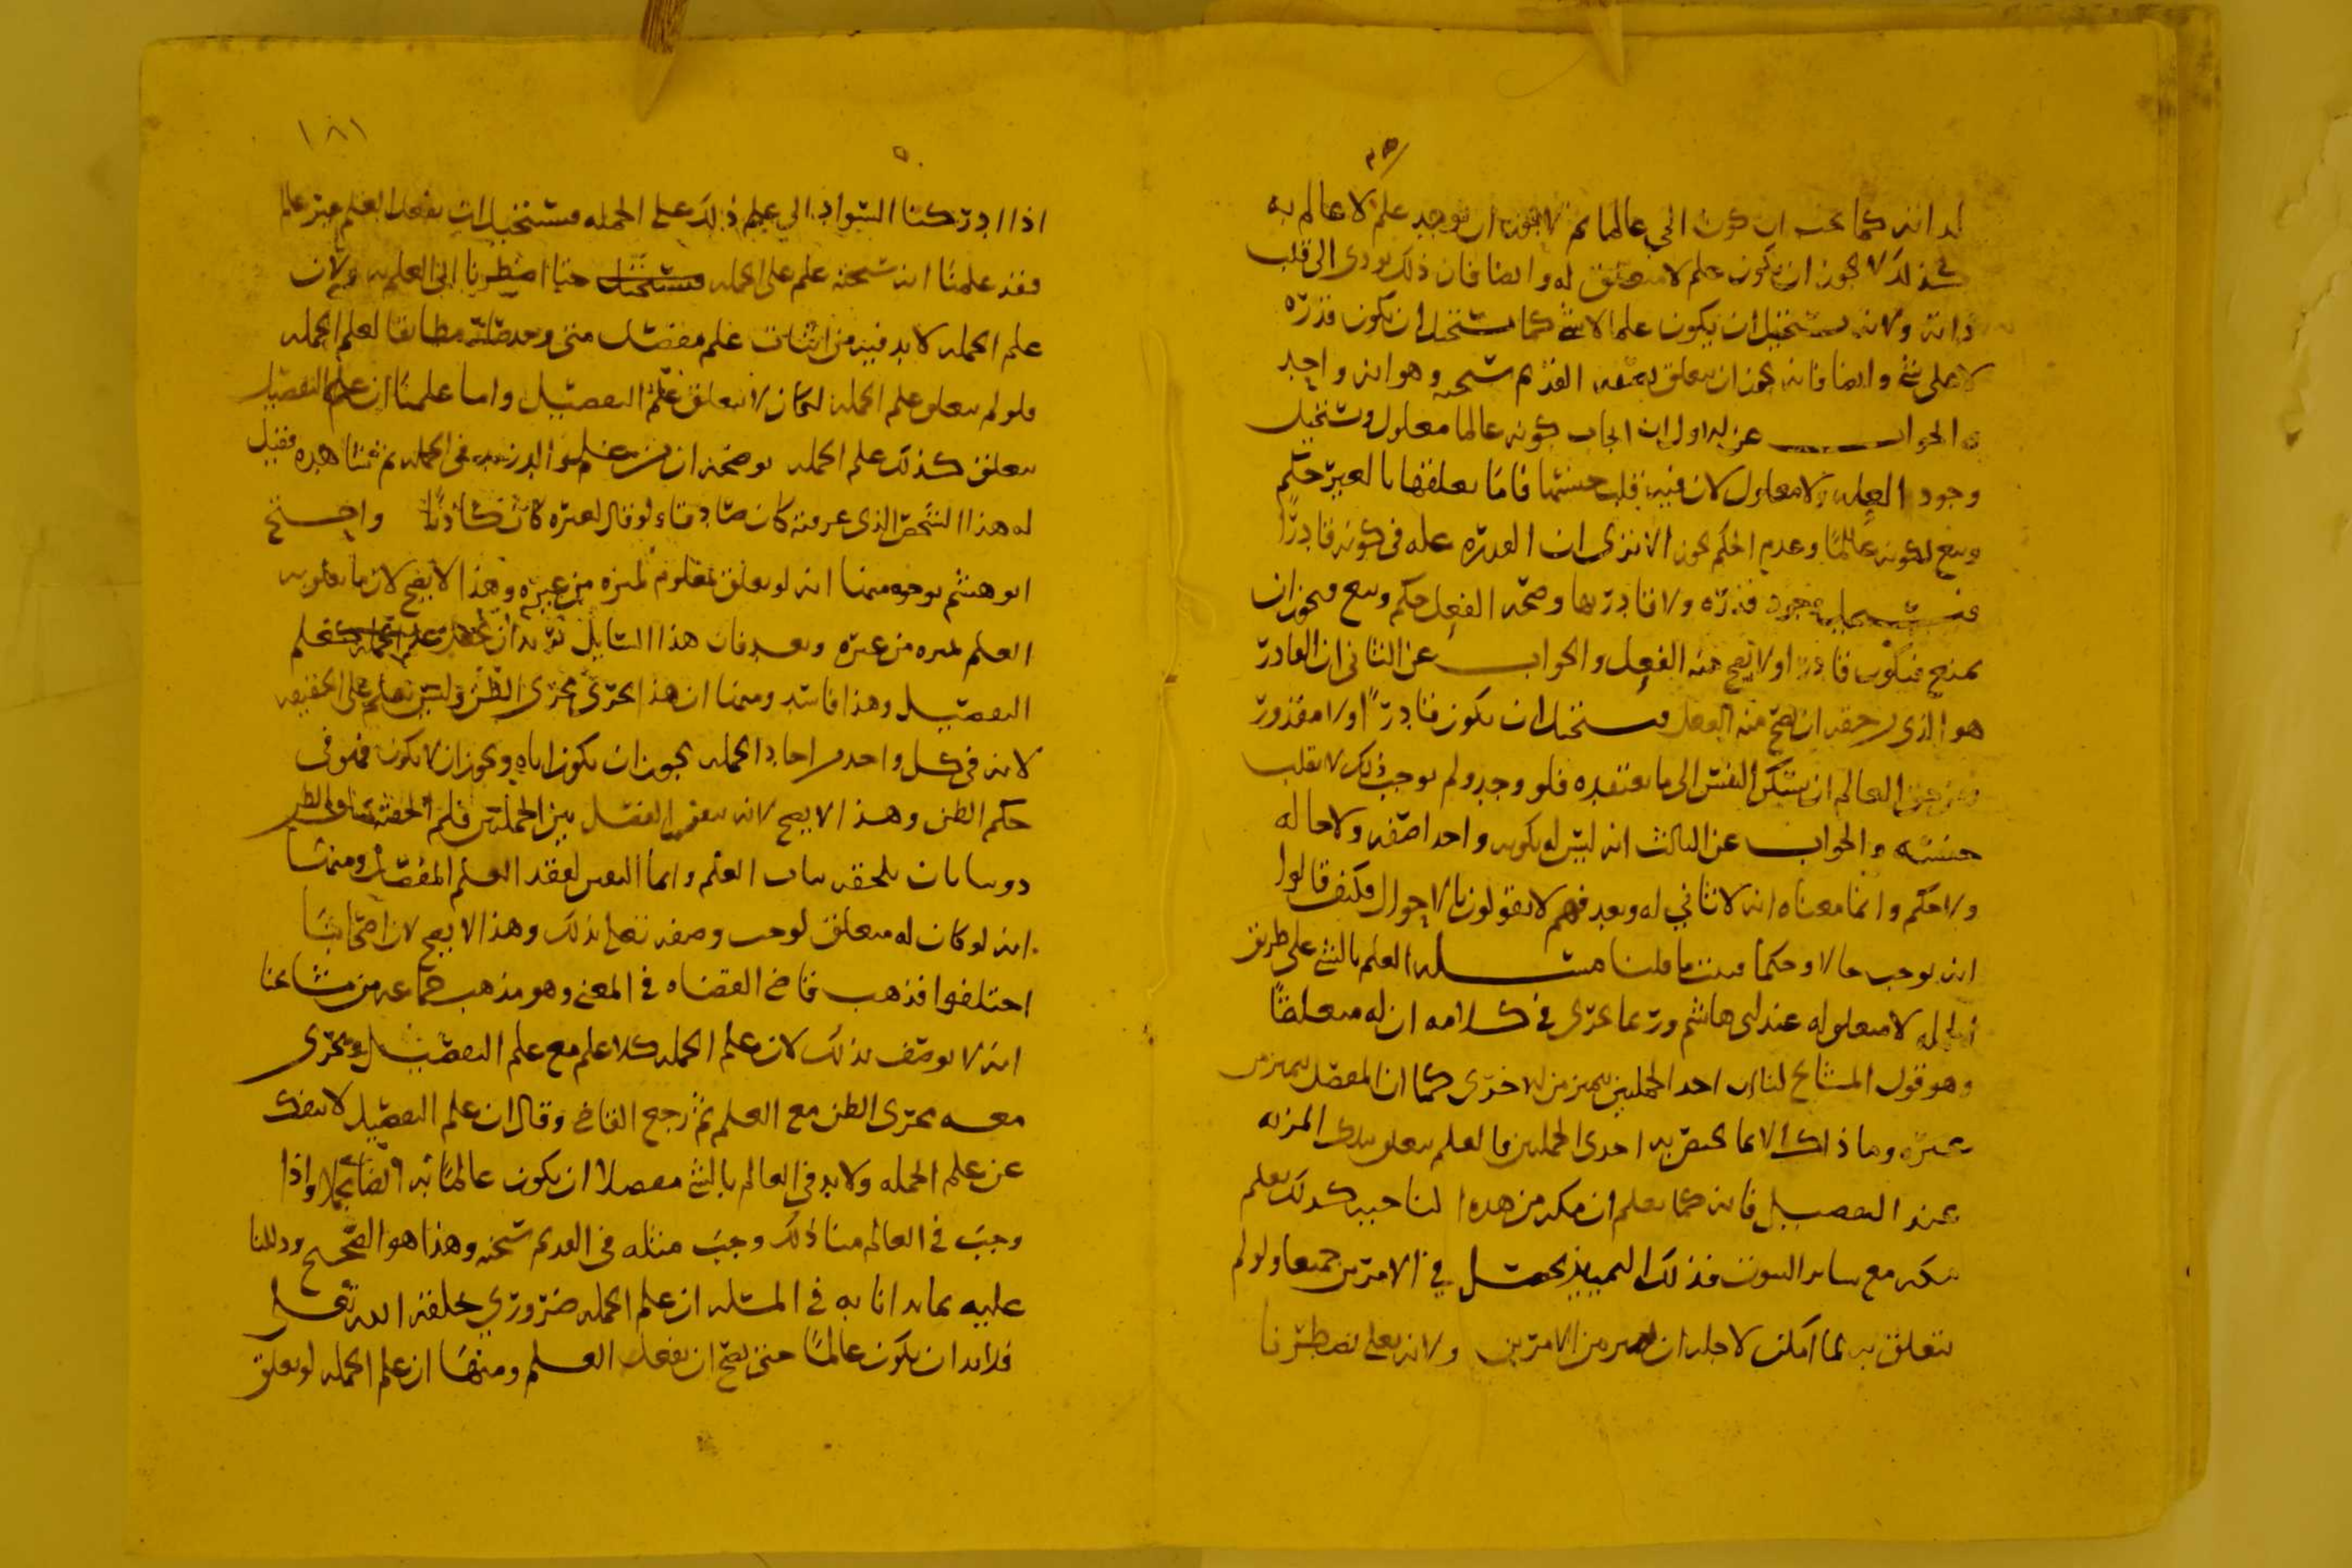 له انه كما يجب ان يكون الحي عالما ثم لا يجوز ان يوجد علم لا عالم به
كذلك لا يجوز ان يكون علم لا متعلق له وايضا فان ذلك يودى الى قلب
ذاته ولانه يستحيل ان يكون علما لا بشئ كما يستحيل ان يكون قدره
لا على شئ وايضا فانه يجوز ان يتعلق بصفه القديم سبحنه وهو انه واجد
والجواب عن الاول ان ايجاب كونه عالما معلول ويستحيل
وجود العله ولا معلول لان فيه قلب جنسها فاما تعلقها بالغير حكم
ويتبع لكونه عالما وعدم الحكم يجوز الا ترى ان القدره عله فى كونه قادرا
فيستحيل وجود قدره ولا قادر بها وصحه الفعل حكم ويتبع فيجوز ان
يمنع فيكون قادرا ولا يصح منه الفعل والجواب عن الثانى ان القادر
هو الذى من حقه ان يصح منه الفعل فيستحيل ان يكون قادرا ولا مقدور
ومن حق العالم ان يسكن النفس الى ما يعتقده فلو وجد ولم يوجب ذلك لانقلب
جنسه والجواب عن الثالث انه ليس له بكونه واحدا صفه ولا حاله
ولا حكم وانما معناه انه لا ثاني له وبعد فهم لا يقولون بالاحوال فكيف قالوا
انه يوجب حالا وحكما فثبت ما قلنا مسئله العلم بالشئ على طريق
الجمله لا متعلق له عند ابى هاشم وربما يجرى في كلامه ان له متعلقا
وهو قول المشايخ لنا ان احد الجملتين يتميز من الاخرى كما ان المفصل يتميز من
غيره وما ذاك الا بما يختص به احدى الجملتين فالعلم يتعلق بتلك المزيه
عند التفصيل فانه كما يعلم ان مكه من هذه لنا حيز كذلك يعلم
مكه مع ساير البيوت فذلك التمييز يحصل في الامرين جميعا ولو لم
يتعلق به لما امكن لاجله ان يميز من الامرين ولانه تعلى يضطرنا
اذا ادركنا السواد الى علم ذلك على الجمله فيستحيل ان يفعل العلم غير عالم
فقد علمنا انه سبحنه علم على الجمله حتى اضطرنا الى العلم به ولان
علم الجمله لا بد فيه من اثبات علم مفصل متى وجد صار مطابقا لعلم الجمله
فلو لم يتعلق علم الجمله لكان لا يتعلق علم التفصيل واما علمنا ان علم التفصيل
يتعلق كذلك علم الجمله يوضحه ان فى الجمله ثم شاهده فقيل
له هذا الشخص الذى عرفته كان صادقا ولو قال لغيره كان كاذبا واحتج
ابو هشم بوجوه منها انه لو تعلق بمعلوم لميزه من غيره وهذا لا يصح لان ما تعلق به
العلم لميزه من غيره وبعد فان هذا السايل يريد ان كعلم
التفصيل وهذا فاسد ومنها ان هذا يجرى مجرى الظن وليس بعلم على الحقيقه
لانه فى كل واحد من احاد الجمله يجوز ان يكون اياه ويجوز ان لا يكون فهو فى
حكم الظن وهذا لا يصح لانه يقع الفصل بين الجملتين فلم
دون ان يلحقه بباب العلم وانما لفقد العلم المفصل ومنها
انه لو كان له متعلق لوجب وصفه تعلى بذلك وهذا لا يصح لان اصحابنا
اختلفوا فذهب قاضى القضاه في المغنى وهو مذهب جماعه من مشايخنا
انه لا يوصف بذلك لان علم الجمله كلا علم مع علم التفصيل ويجرى
معه مجرى الظن مع العلم ثم رجع القاضى وقال ان علم التفصيل لا ينفك
عن علم الجمله ولا بد فى العالم بالشئ مفصلا ان يكون عالما به ايضا مجملا واذا
وجب في العالم منا ذلك وجب مثله فى القديم سبحنه وهذا هو الصحيح ودللنا
عليه بما بدانا به في المسئله ان علم الجمله ضروري يخلقه الله تعلى
فلا بد ان يكون عالما حتى يصح ان يفعل العلم ومنها ان علم الجمله لو تعلق